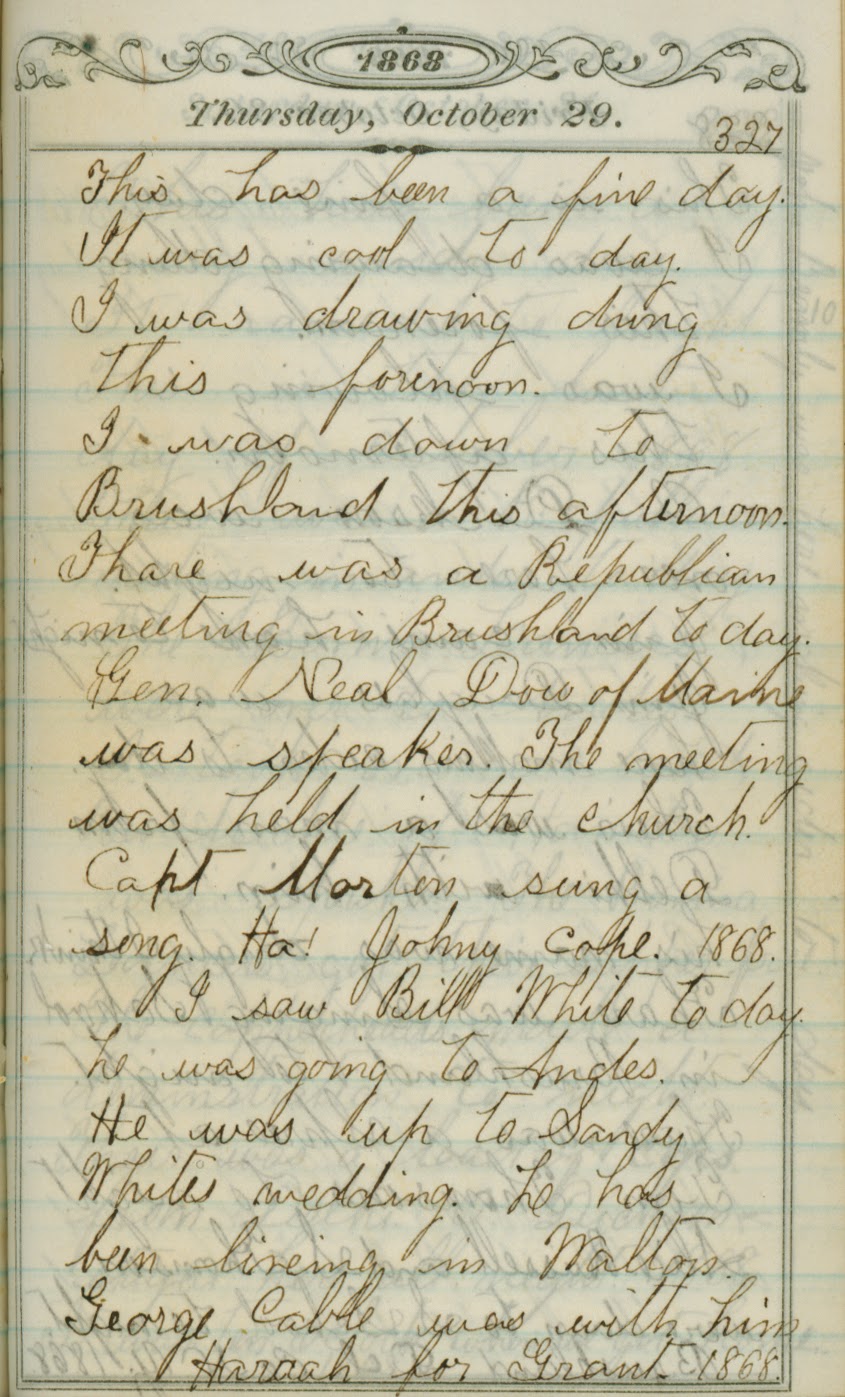 1868
Thursday, October 29.
327
This has been a fine day.
It was cool to day.
I was drawing dung
this forenoon.
I was down to
Brushland this afternoon.
Thare was a Republican
meeting in Brushland to day.
Gen. Neal Dow of Maine
was speaker. The meeting
was held in the church.
Capt Morton sung a
song. Ha! Johny Cope. 1868.
I saw Bill White to day.
he was going to Andes.
He was up to Sandy
Whites wedding. he has
been liveing in Walton.
George Cable was with him
Haraah for Grant. 1868.